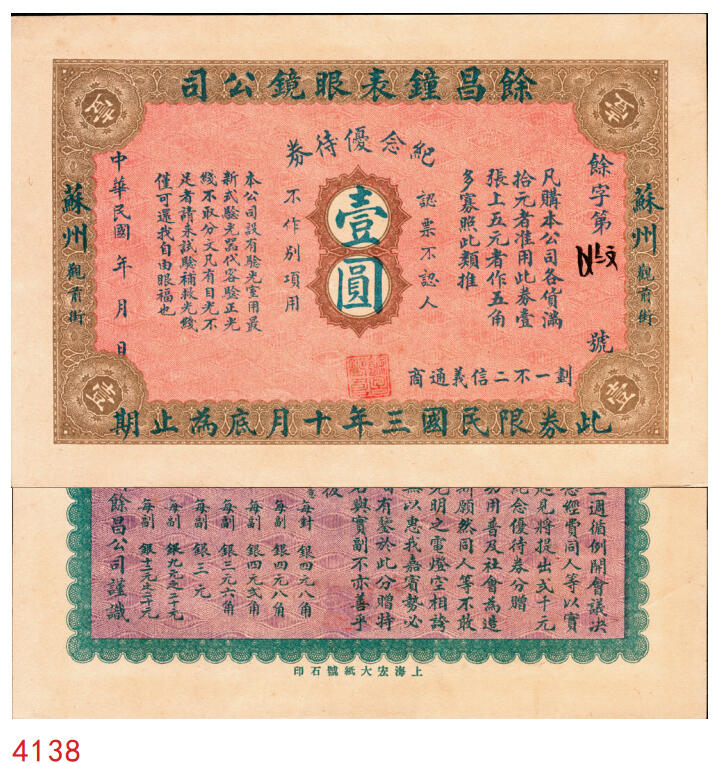 餘昌鐘表眼鏡公司
蘇州觀前街
紀念優待券
餘字第 號
凡購本公司各貨滿
拾元者准用此券壹
張上五元者作五角
多寡照此類推
認票不認人
壹圓
不作別項用
本公司設有驗光室用最
新式驗光器代客驗正光
綫不取分文凡有目光不
足者請來試驗補救光綫
僅可還我自由眼福也
中華民國 年 月 日
蘇州觀前街
劃一不二信義通商
此券限民國三年十月底為止期
週循例開會議決
念經費同人等以實
起見將提出弍千元
紀念優待券分贈
功用普及社會為造
願然同人等不敢
光明之電燈空相誇
無以惠我嘉賓勢必
司有鑒於此分贈特
名與實副不亦善乎
每對 銀四元八角
每副 銀四元八角
每副 銀四元弍角
每副 銀三元六角
每副 銀三元
每副 銀九元至二十元
每副 銀十元至二十元
餘昌公司謹識
上海宏大紙號石印
4138